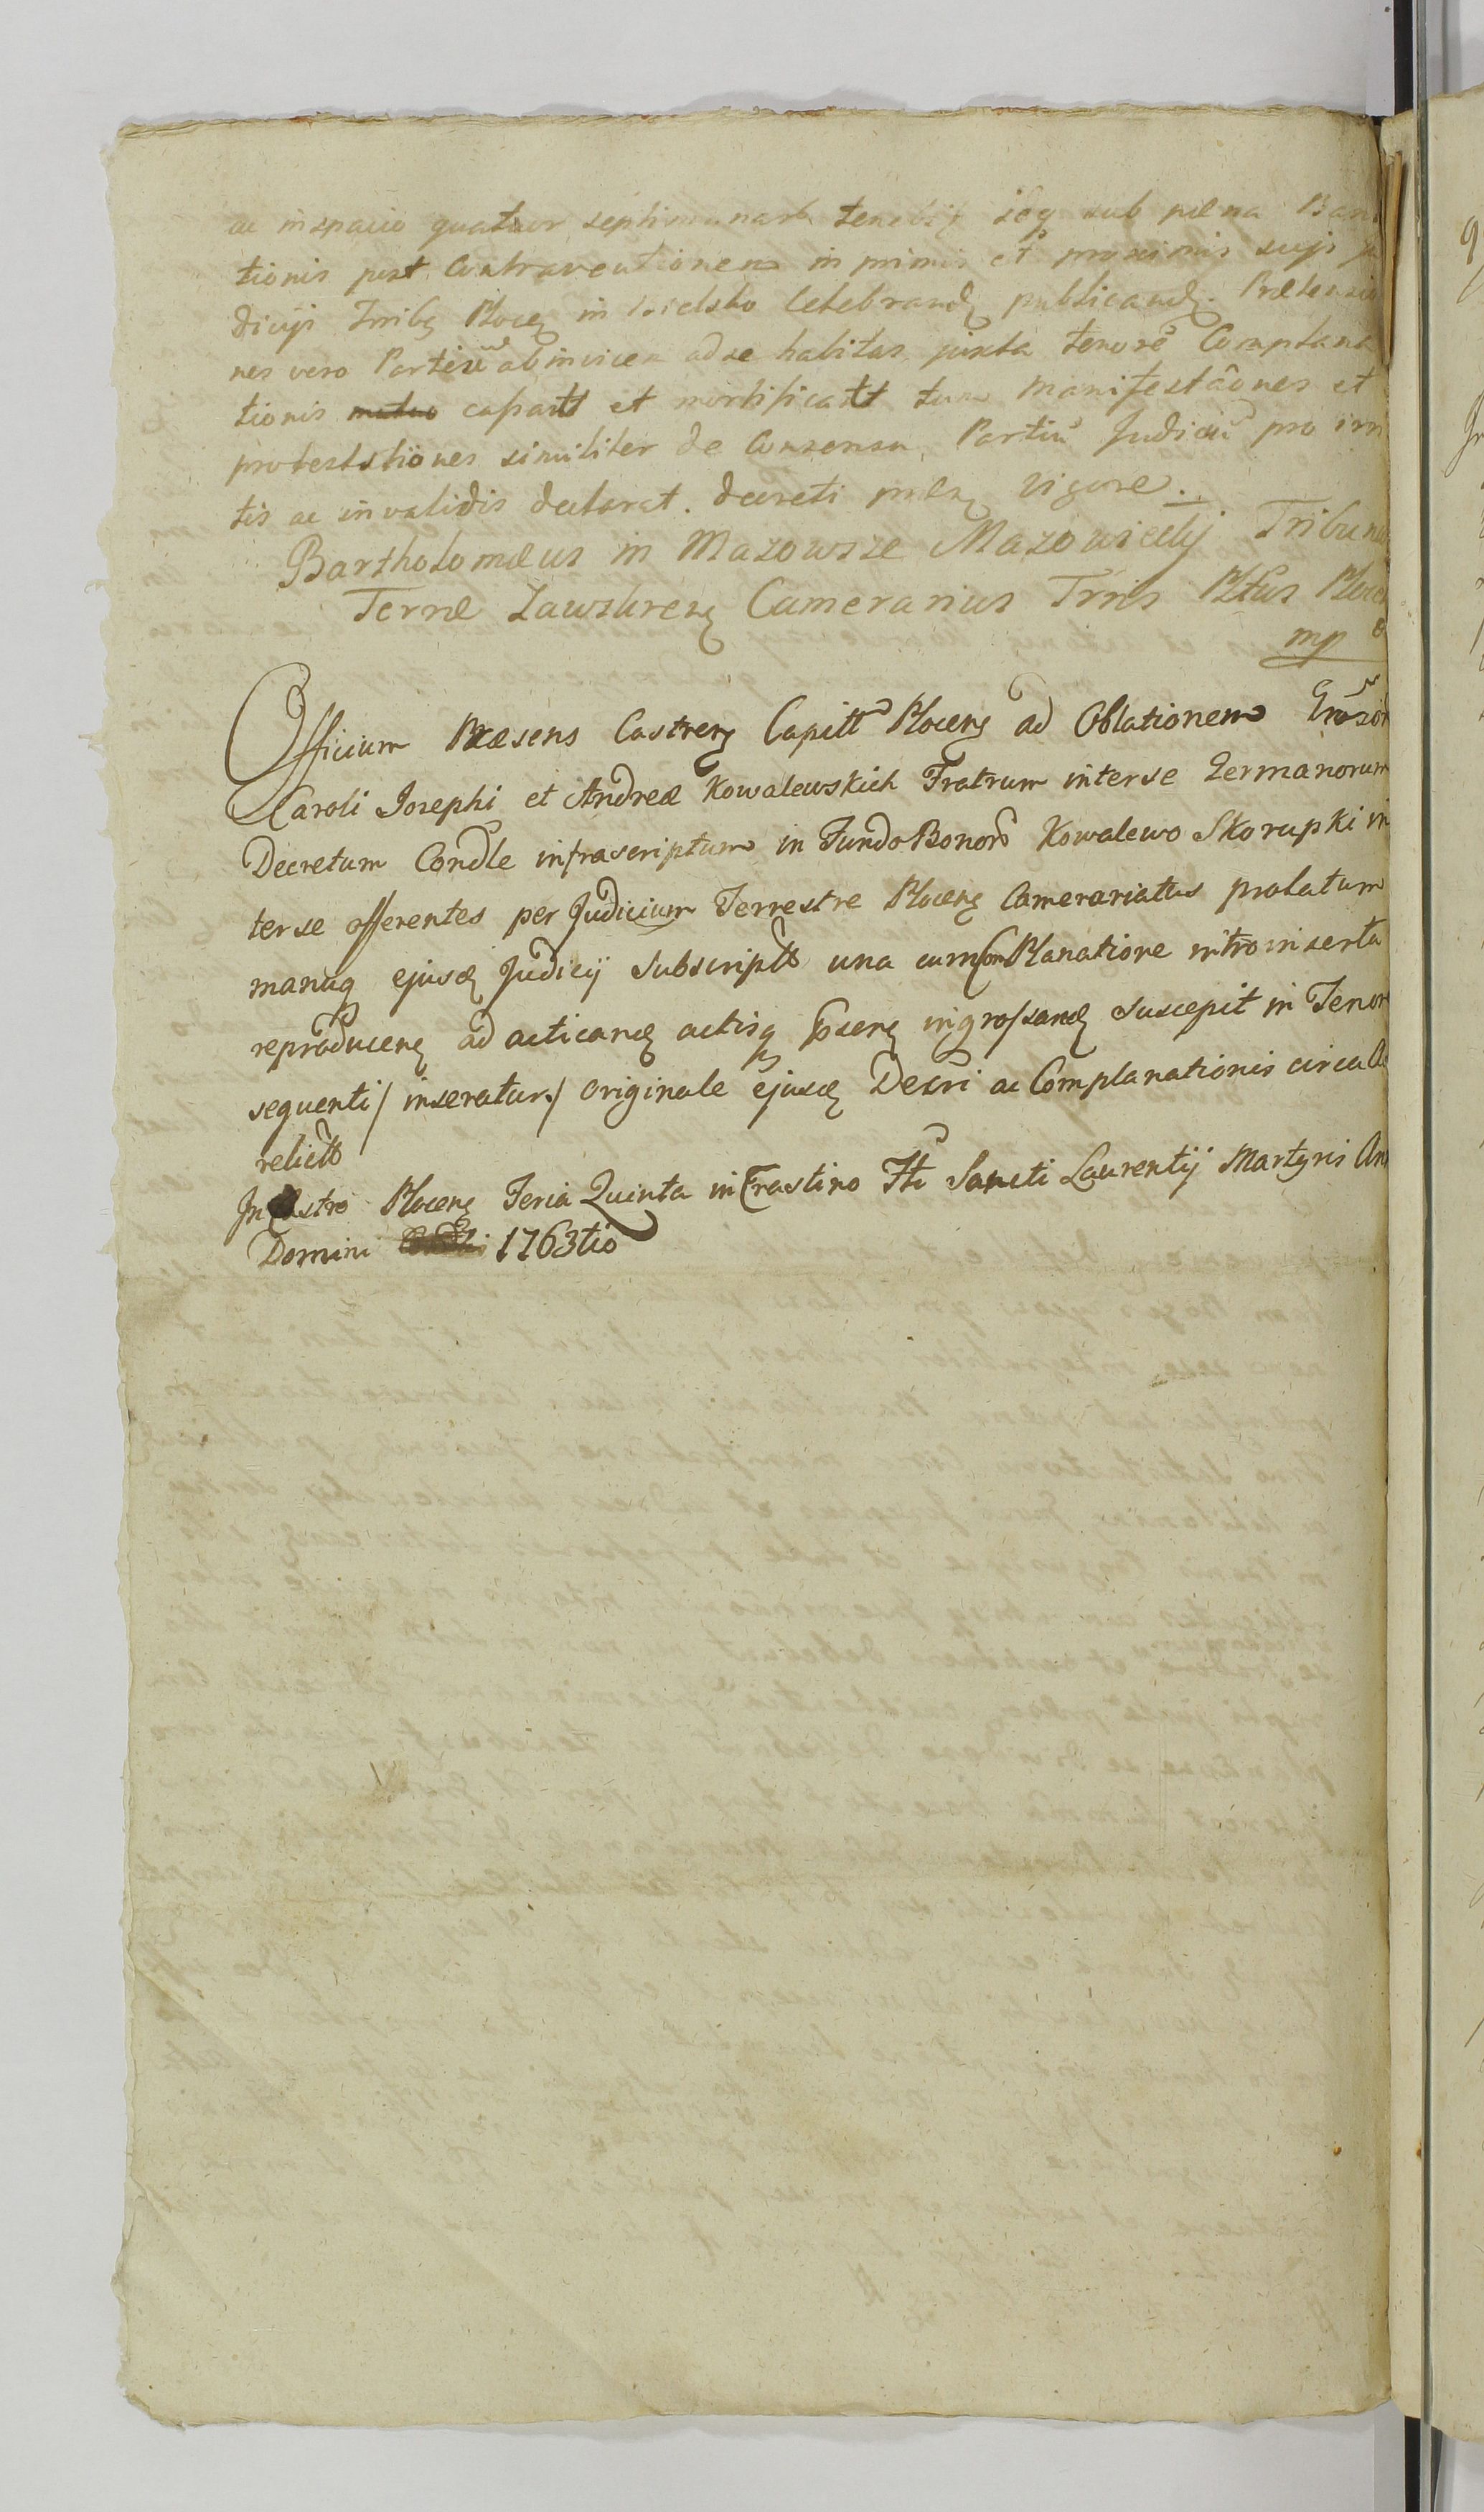 ac in spacio quatuor septimanarū tenebīt seq sub pœna Bani
tionis post Contraventionem in primis et proximis sujs Ju
dicijs Trrib Plocen in Bielsko Celebrand publicand. Prætensio
nes vero Partiū ab invicem ad se habitas juxta tenorē Complana
tionis cassatt et mortificatt tum Manifestāones et
protestationes similiter de Consensu Partiū Judiciū pro irri
tis ac invalidis declarat. decreti præsen vigore.
Bartholomæus in Mazowsze Mazowiecky Tribun
Terræ Zawskren Camerarius Trris Pltus Plocen
mp
Officium Præsens Castren Capitt Plocen ad Oblationem Grosor
Caroli Josephi et Andreæ Kowalewskich Fratrum interse Germanorum
Decretum Condle infrascriptum in Fundo Bonorō Kowalewo Skorupki in
ter se offerentes per Judicium Terrestre Plocen Camerariatus prolatum
manuq ejusd Judicij subscriptt una cum Complanatione introinserta
reproducen ad acticand actisq psen ingrossand suscepit in Tenore
sequenti / inseratur / originale ejusd Decri ac Complanationis circa Ac
relictt
In Castro Plocen Feria Quinta in Crastino Fti Sancti Laurentij Martyris An
Domini 1763tio